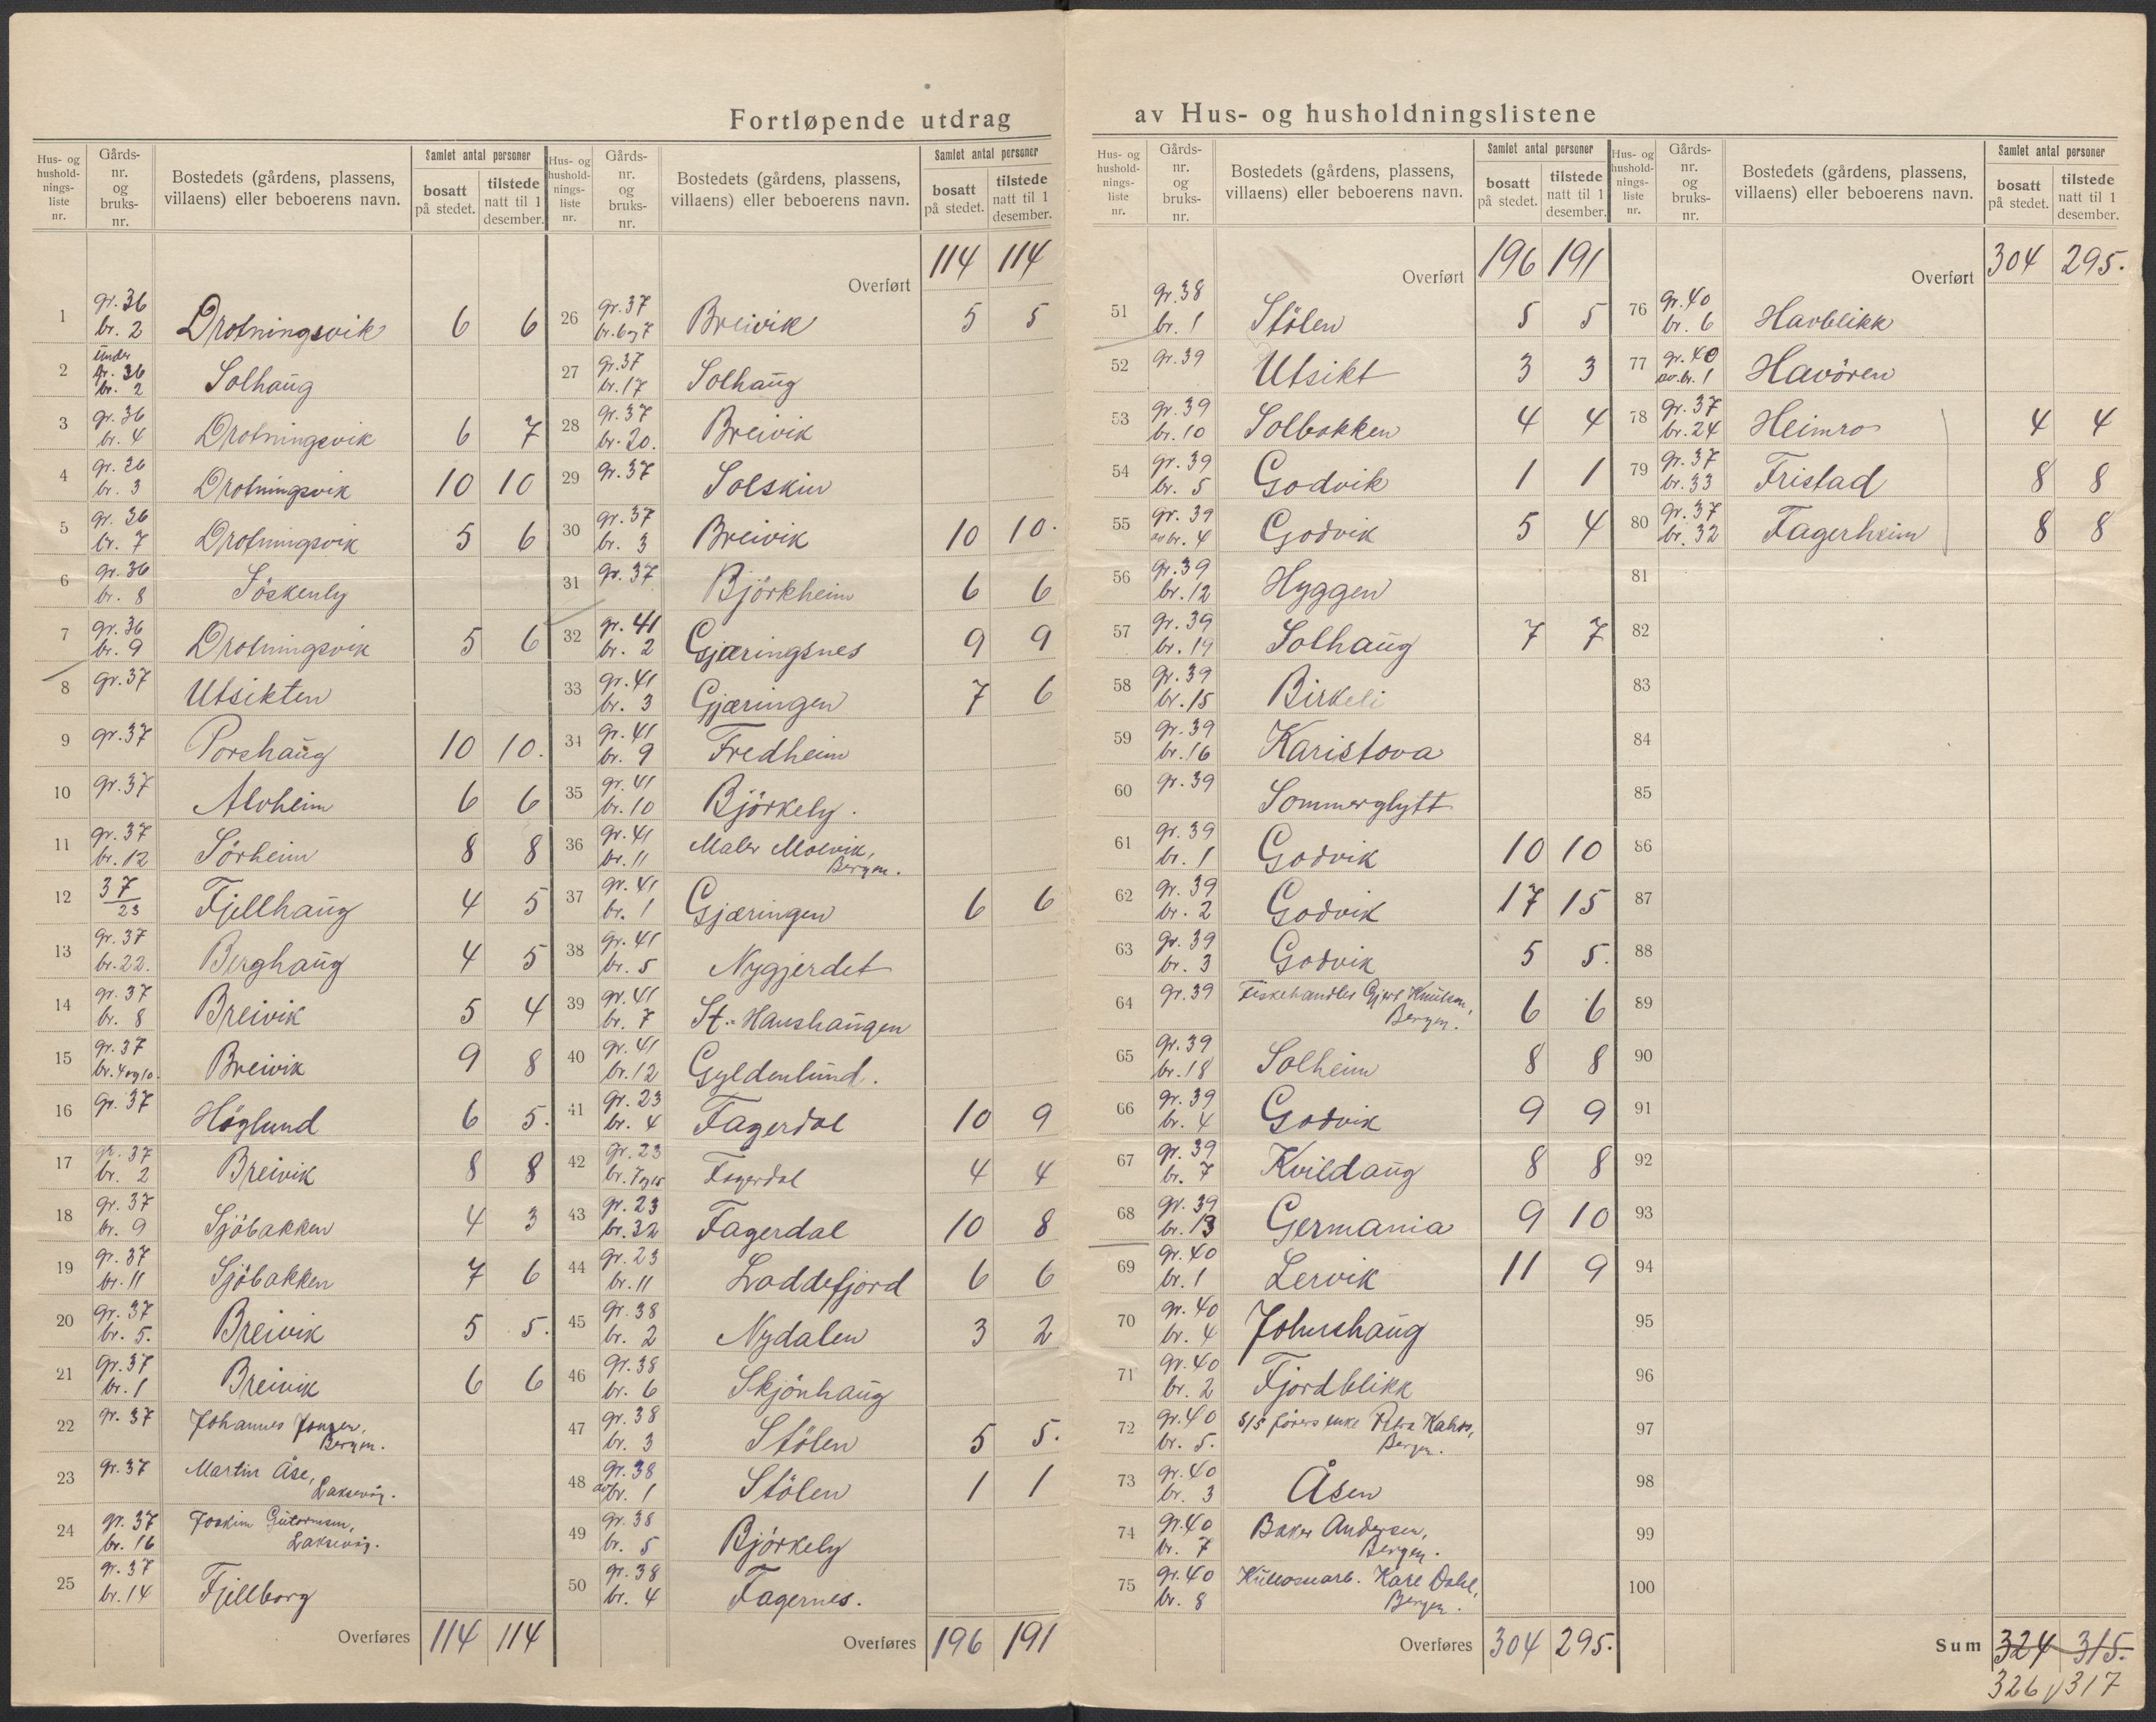 Fortløpende utdrag av Hus- og husholdningslistene
Hus- og husholdnings-liste nr. | Gårds-nr. og bruks-nr. | Bostedets (gårdens, plassens, villaens) eller beboerens navn. | Samlet antal personer bosatt på stedet. | tilstede natt til 1 desember.
1 gr. 36 br. 2 Drotningsvik 6 6
2 Under gr. 36 br. 2 Solhaug
3 gr. 36 br. 4 Drotningsvik 6 7
4 gr. 36 br. 3 Drotningsvik 10 10
5 gr. 36 br. 7 Drotningsvik 5 6
6 gr. 36 br. 8
7 gr. 36 br. 9 Drotningsvik 5 6
8 gr. 37 Utsikten
9 gr. 37 Porshaug 10 10.
10 gr. 37 Alvheim 6 6
11 gr. 37 br. 12 Sörheim 8 8
12 37/23 Fjellhaug 4 5
13 gr. 37 br. 22. Berghaug 4 5
14 gr. 37 br. 8 Breivik 5 4
15 gr. 37 br. 4 og 10. Breivik 9 8
16 gr. 37 Höglund 6 5.
17 gr. 37 br. 2 Breivik 8 8
18 gr. 37 br. 9 Sjöbakken 4 3
19 gr. 37 br. 11 Sjöbakken 7 6
20 gr. 37 br. 5. Breivik 5 5.
21 gr. 37 br. 1 Breivik 6 6
22 gr. 37 Johannes Bergen.
23 gr. 37 Martin Åse, Laksevåg.
24 gr. 37 br. 16 Joakim Gutormsen, Laksevåg.
25 gr. 37 br. 14 Fjellborg
Overføres 114 114
Hus- og husholdnings-liste nr. | Gårds-nr. og bruks-nr. | Bostedets (gårdens, plassens, villaens) eller beboerens navn. | Samlet antal personer bosatt på stedet. | tilstede natt til 1 desember.
Overført 114 114
26 gr. 37 br. 6 og 7 Breivik 5 5
27 gr. 37 br. 17 Solhaug
28 gr. 37 br. 20. Breivik
29 gr. 37 Solskin
30 gr. 37 br. 3 Breivik 10 10.
31 gr. 37 Björkheim 6 6
32 gr. 41 br. 2 Gjæringsnes 9 9
33 gr. 41 br. 3 Gjæringen 7 6
34 gr. 41 br. 9 Fredheim
35 gr. 41 br. 10 Björkely.
36 gr. 41 br. 11 Maler Molvik, Bergen.
37 gr. 41 br. 1 Gjæringen 6 6
38 gr. 41 br. 5 Nygjerdet
39 gr. 41 br. 7 St. Hanshaugen
40 gr. 41 br. 12 Gyldenlund.
41 gr. 23 br. 4 Fagerdal 10 9
42 gr. 23 br. 7 og 15 Fagerdal 4 4
43 gr. 23 br. 32 Fagerdal 10 8
44 gr. 23 br. 11 Loddefjord 6 6
45 gr. 38 br. 2 Nydalen 3 2
46 gr. 38 br. 6 Skjönhaug
47 gr. 38 br. 3 Stölen 5 5.
48 gr. 38 av br. 1 Stölen 1 1
49 gr. 38 br. 5 Björkely
50 gr. 38 br. 4 Fagernes.
Overføres 196 191
Hus- og husholdnings-liste nr. | Gårds-nr. og bruks-nr. | Bostedets (gårdens, plassens, villaens) eller beboerens navn. | Samlet antal personer bosatt på stedet. | tilstede natt til 1 desember.
Overført 196 191
51 gr. 38 br. 1 Stölen 5 5
52 gr. 39 Utsikt 3 3
53 gr. 39 br. 10 Solbakken 4 4
54 gr. 39 br. 5 Godvik 1 1
55 gr. 39 av br. 4 Godvik 5 4
56 gr. 39 br. 12 Hyggen
57 gr. 39 br. 19 Solhaug 7 7
58 gr. 39 br. 15 Birkeli
59 gr. 39 br. 16 Karistova
60 gr. 39 Sommerglytt
61 gr. 39 br. 1 Godvik 10 10
62 gr. 39 br. 2 Godvik 17 15
63 gr. 39 br. 3 Godvik 5 5.
64 gr. 39 Fiskehandler Gjert Knutsen, Bergen. 6 6
65 gr. 39 br. 18 Solheim 8 8
66 gr. 39 br. 4 Godvik 9 9
67 gr. 39 br. 7 Kvildaug 8 8
68 gr. 39 br. 13 Germania 9 10
69 gr. 40 br. 1 Lervik 11 9
70 gr. 40 br. 4 Johnshaug
71 gr. 40 br. 2 Fjordblikk
72 gr. 40 br. 5. S/S förers enke Petra Bergen.
73 gr. 40 br. 3 Åsen
74 gr. 40 br. 7 Baker Andersen, Bergen.
75 gr. 40 br. 8 Karl Dahl, Bergen.
Overføres 304 295.
Hus- og husholdnings-liste nr. | Gårds-nr. og bruks-nr. | Bostedets (gårdens, plassens, villaens) eller beboerens navn. | Samlet antal personer bosatt på stedet. | tilstede natt til 1 desember.
Overført 304 295.
76 gr. 40 br. 6 Havblikk
77 gr. 40 av br. 1 Havören
78 gr. 37 br. 24 Heimro 4 4
79 gr. 37 br. 33 Fristad 8 8
80 gr. 37 br. 32 Fagerheim 8 8
81
82
83
84
85
86
87
88
89
90
91
92
93
94
95
96
97
98
99
100
Sum 324 315.
326 317